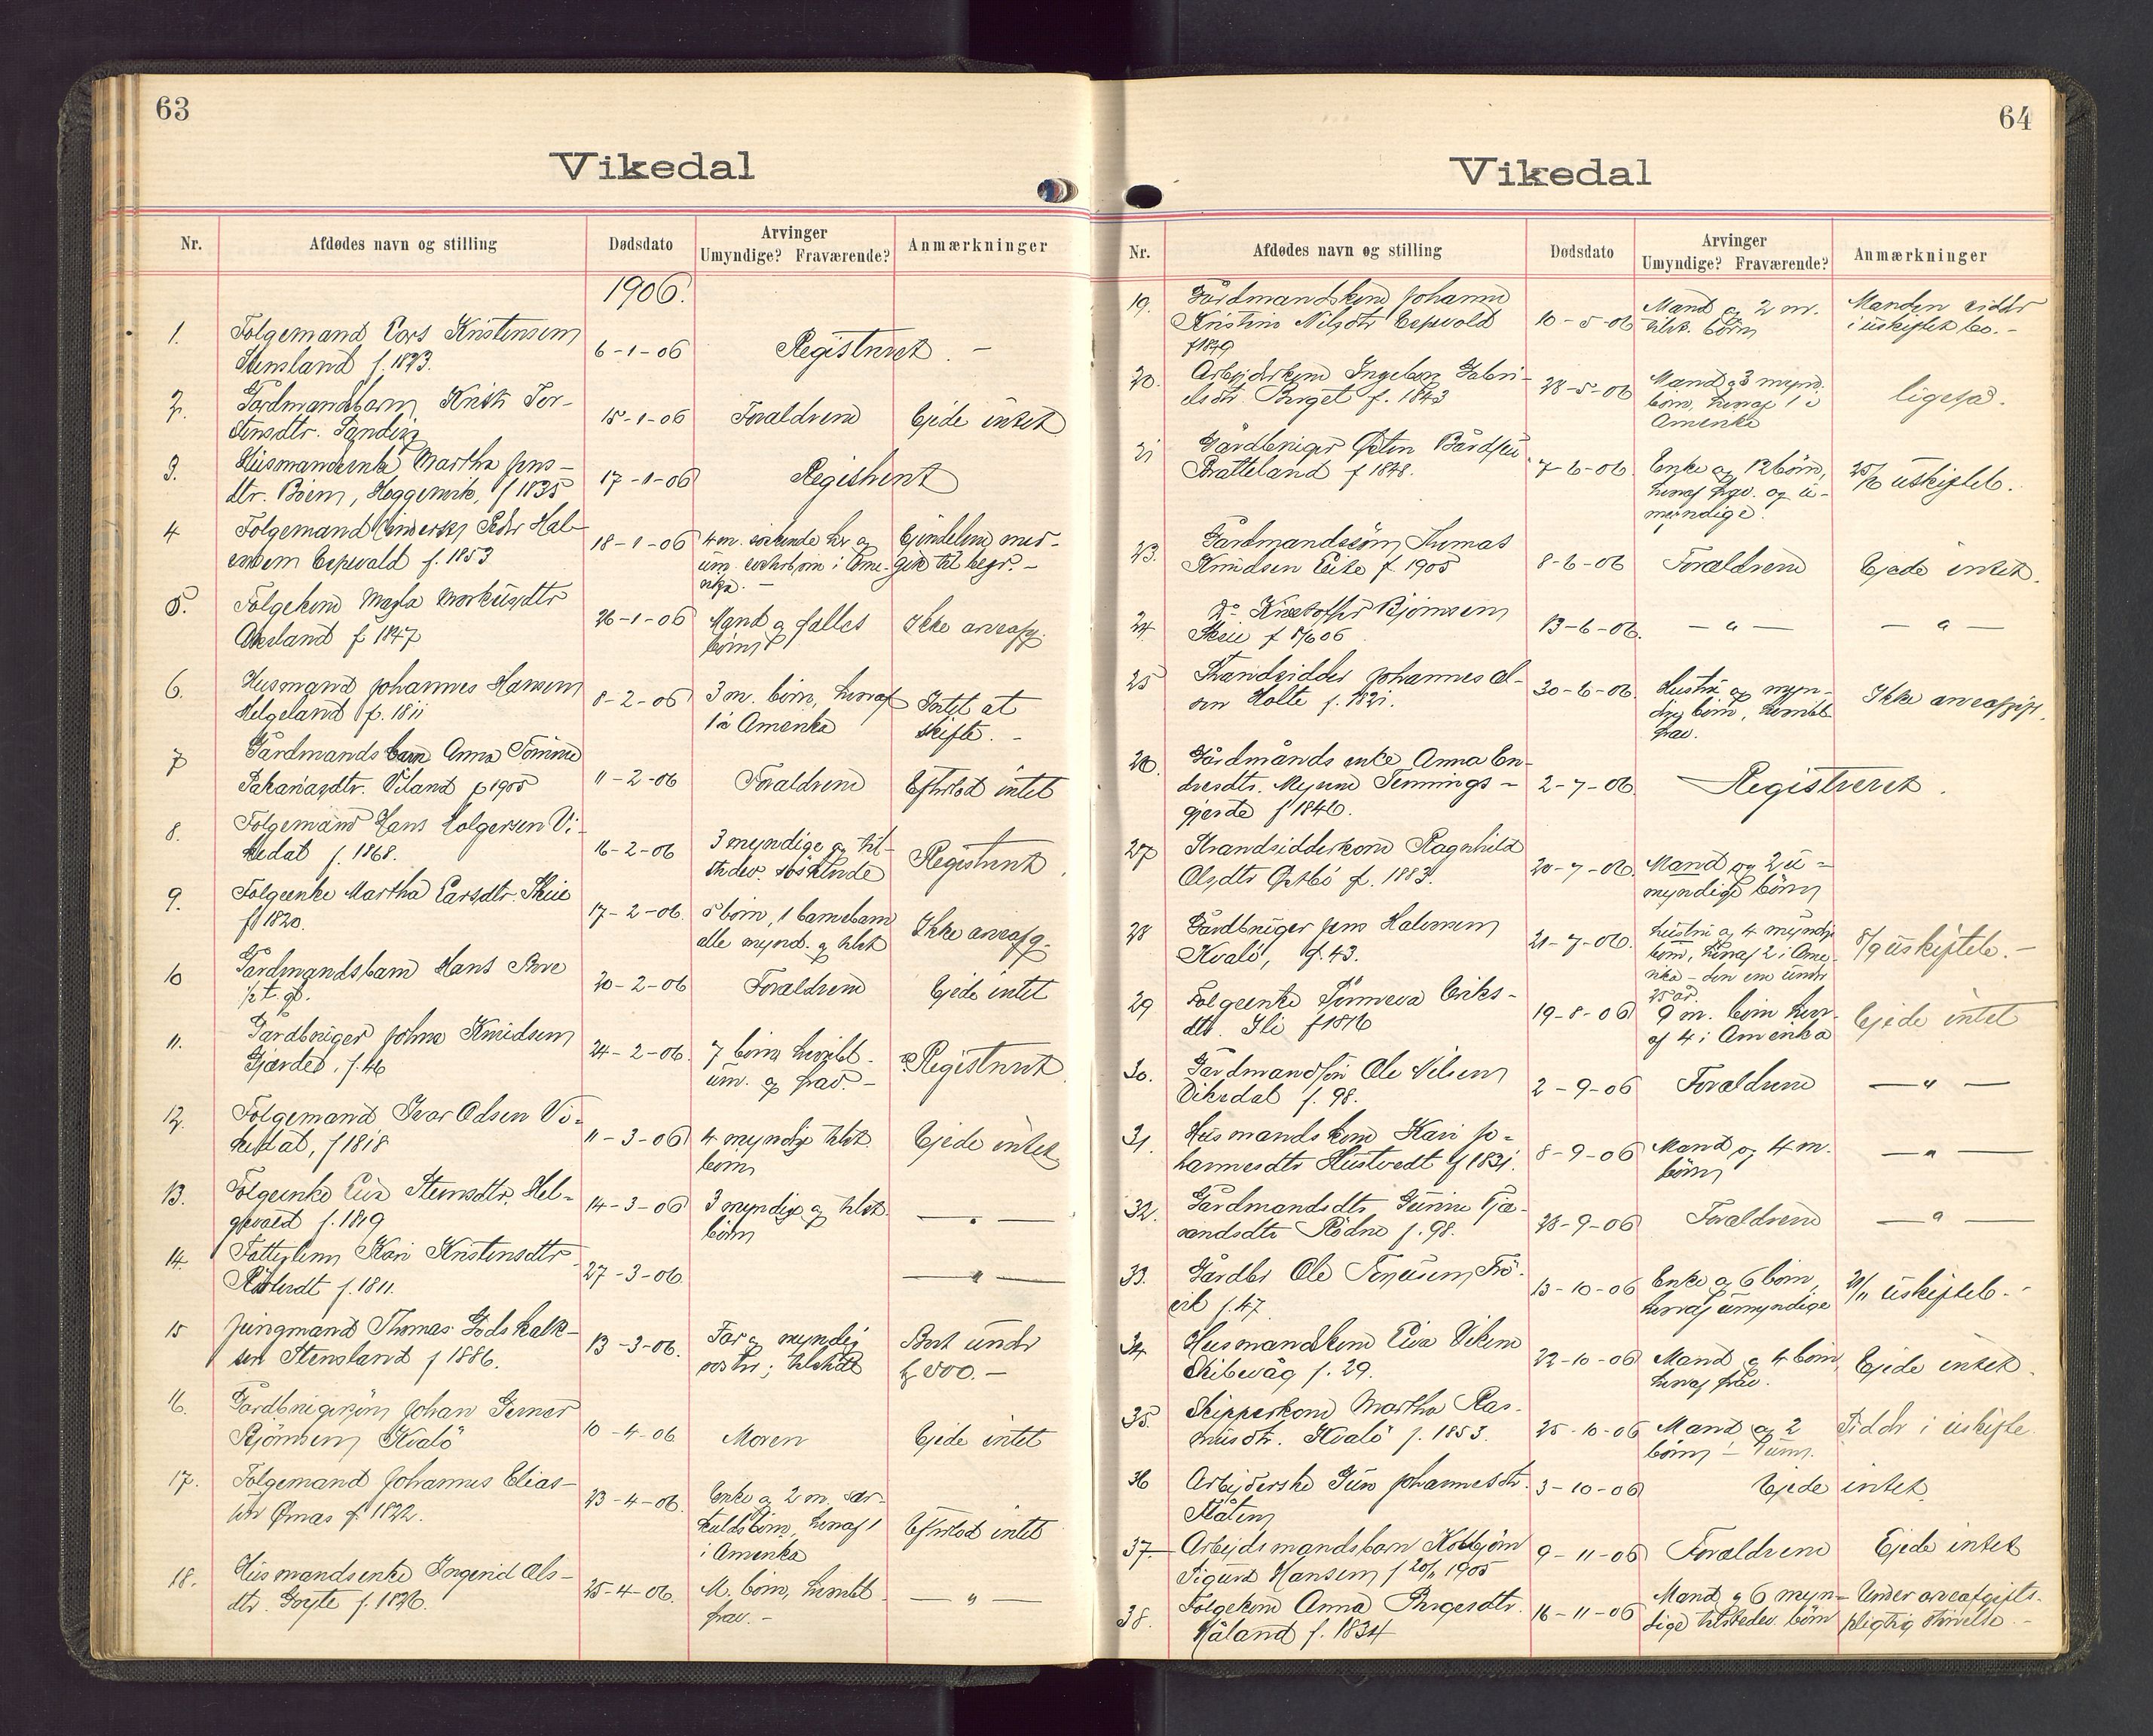 63
Vikedal
Nr. Afdødes navn og stilling Dødsdato Arvinger Umyndige? Fraværende? Anmærkninger
1906.
1. Folgemand Lars Kristensen
Stensland f. 1823. 6-1-06 Registreret. -
2. Gårdmandsbarn Kristi Tor-
stensdtr. Sandeig 15-1-06 Forældrene Eiede intet
3. Husmandsenke Martha Jens-
dtr. Boien, Heggevik, f 1835 17-1-06 Registreret
4 Folgemand Peder Hal-
Espevold f. 1853 18-1-06 4 m. søskende her og
um. i Ame-
rika. - Eiendelene med-
gik til begr. -
5. Folgekone Magla Markusdtr
Økesland f. 1847 26-1-06 Mand og fælles
børn Ikke arveafg.
6. Husmand Johannes Hansen
Helgeland f. 1811 8-2-06 3 m. børn, heraf
1 i Amerika Intet at
skifte. -
7 Gårdmandsbarn Anna Tomine
Sakariasdtr. Viland f 1905 11-2-06 Forældrene Efterlod intet
8. Folgemand Hans Holgersen Vi-
kedal f. 1868. 16-2-06 3 myndige og til-
stedev. søskende Registreret.
9. Folgeenke Martha Larsdtr. Skeie
f 1820. 17-2-06. 5 børn, 1 barnebarn
alle mynd. og tilst. Ikke arveafg.
10 Gårdmandsbarn Hans
1/2 t. gl. 20-2-06 Forældrene Eiede intet
11. Gårdbruger Johne Knudsen
Gjerdet, f. 46 24-2-06. 7 børn hvoribl.
um. og frav. - Registreret.
12. Folgemand Ivar Odsen Vi-
kedal, f 1818 11-3-06 4 myndige tilst.
børn Eiede intet
13. Folgeenke Eva Stensdtr. Hel-
gevold f. 1819 14-3-06 3 myndige og tilst.
børn — " —
14. Fattiglem Kari Kristensdtr
f. 1811. 27-3-06. — " —
15 Jungmand Thomas Godskalk-
sen Stensland f 1886. 13-3-06. Far og myndig
søster; tilstede Bort under
kr 500. -
16. Gårdbrugersøn Johan Gerner
Bjørnsen Kvalø 10-4-06 Moren Eiede intet
17. Folgemand Johannes Elias-
sen Ørnas f. 1822. 23-4-06. Enke og 2 m. sær-
kuldsbørn, heraf 1
i Amerika Efterlod intet
18. Husmandsenke Ingerid Ols-
dtr. f. 1826. 25-4-06. M. børn, heribl.
frav. - — " —
64
Vikedal
Nr. Afdødes navn og stilling Dødsdato Arvinger Umyndige? Fraværende? Anmærkninger
19. Gårdmandskone Johanne
Kristine Nilsdtr Espevold
f 1849 10-5-06 Mand og 2 m.
tilst. børn Manden sidder
i uskiftet bo. -
20. Arbejderkone Ingebor Gabri-
elsdtr. Berget f. 1843 28-5-06 Mand og 3 mynd.
børn, heraf 1 i
Amerika ligeså.
21 Gårdbruger Østen Bårdsen
Bratteland f 1848. 7-6-06. Enke og 12 børn,
heraf frav. og u-
myndige. 25/6 uskifteb.
23. Gårdmandssøn Thomas
Knudsen Leite f. 1905 8-6-06 Forældrene Eiede intet.
24 do. Kristoffer Bjørnsen
Skeie f 06 13-6-06. — " — — " —
25 Strandsidder Johannes Ol-
sen Holte f. 1821. 30-6-06. Hustru og myn-
dige børn, heribl.
frav. Ikke arveafgift.
26. Gårdmands enke Anna En-
dresdtr. Tennings-
gjerde f 1846. 2-7-06. Registreret.
27 Strandsidderkone Ragnhild
Olsdtr Østbø f. 1883. 20-7-06. Mand og 2 u-
myndige børn
28 Gårdbruger Jens Halvorsen
Kvalø, f. 43. 21-7-06. Hustru og 4 myndige
børn, heraf 2 i Ame-
rika - den ene under
25 år. 8/9 uskifteb. -
29 Folgeenke Tønneva Eriks-
dtr. Øli f 1816 19-8-06 9 m. børn her-
af 4 i Amerika Eiede intet
30. Gårdmandsøn Ole Nilsen
Vikedal f. 98. 2-9-06 Forældrene — " —
31. Husmandskone Kari Jo-
hannesdtr Hustvedt f 1831. 8-9-06 Mand og 4 m.
børn — " —
32. Gårdmandsdtr Gurine Tja-
randsdtr Rødne f. 98. 28-9-06 Forældrene — " —
33. Gårdbr Ole Frø-
vik f. 47 13-10-06 Enke og 6 børn
heraf umyndige 21/11 uskifteb. -
34 Husmandskone Eva
Skibevåg f. 29. 22-10-06 Mand og 4 børn
heraf frav. Eiede intet.
35. Skipperkone Martha Ras-
musdtr. Kvalø f. 1853. 25-10-06 Mand og 2
børn - 1 um. Sidder i uskifte
36 Arbejderske Guro Johannesdtr.
Flåten 3-10-06 Eiede intet.
37. Arbejdsmandsbarn Kolbjørn
Sigurd Hansen f 20/11 1905 9-11-06 Forældrene Ejede intet
38. Folgekone Anna Børgesdtr.
Håland f. 1834 16-11-06 Mand og 6 myn-
dige tilstedev. børn Under arveafgifts-
pligtig størrelse. -